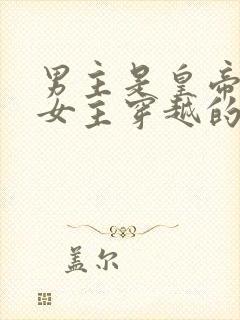 男主是皇帝
女主穿越的
盖尔